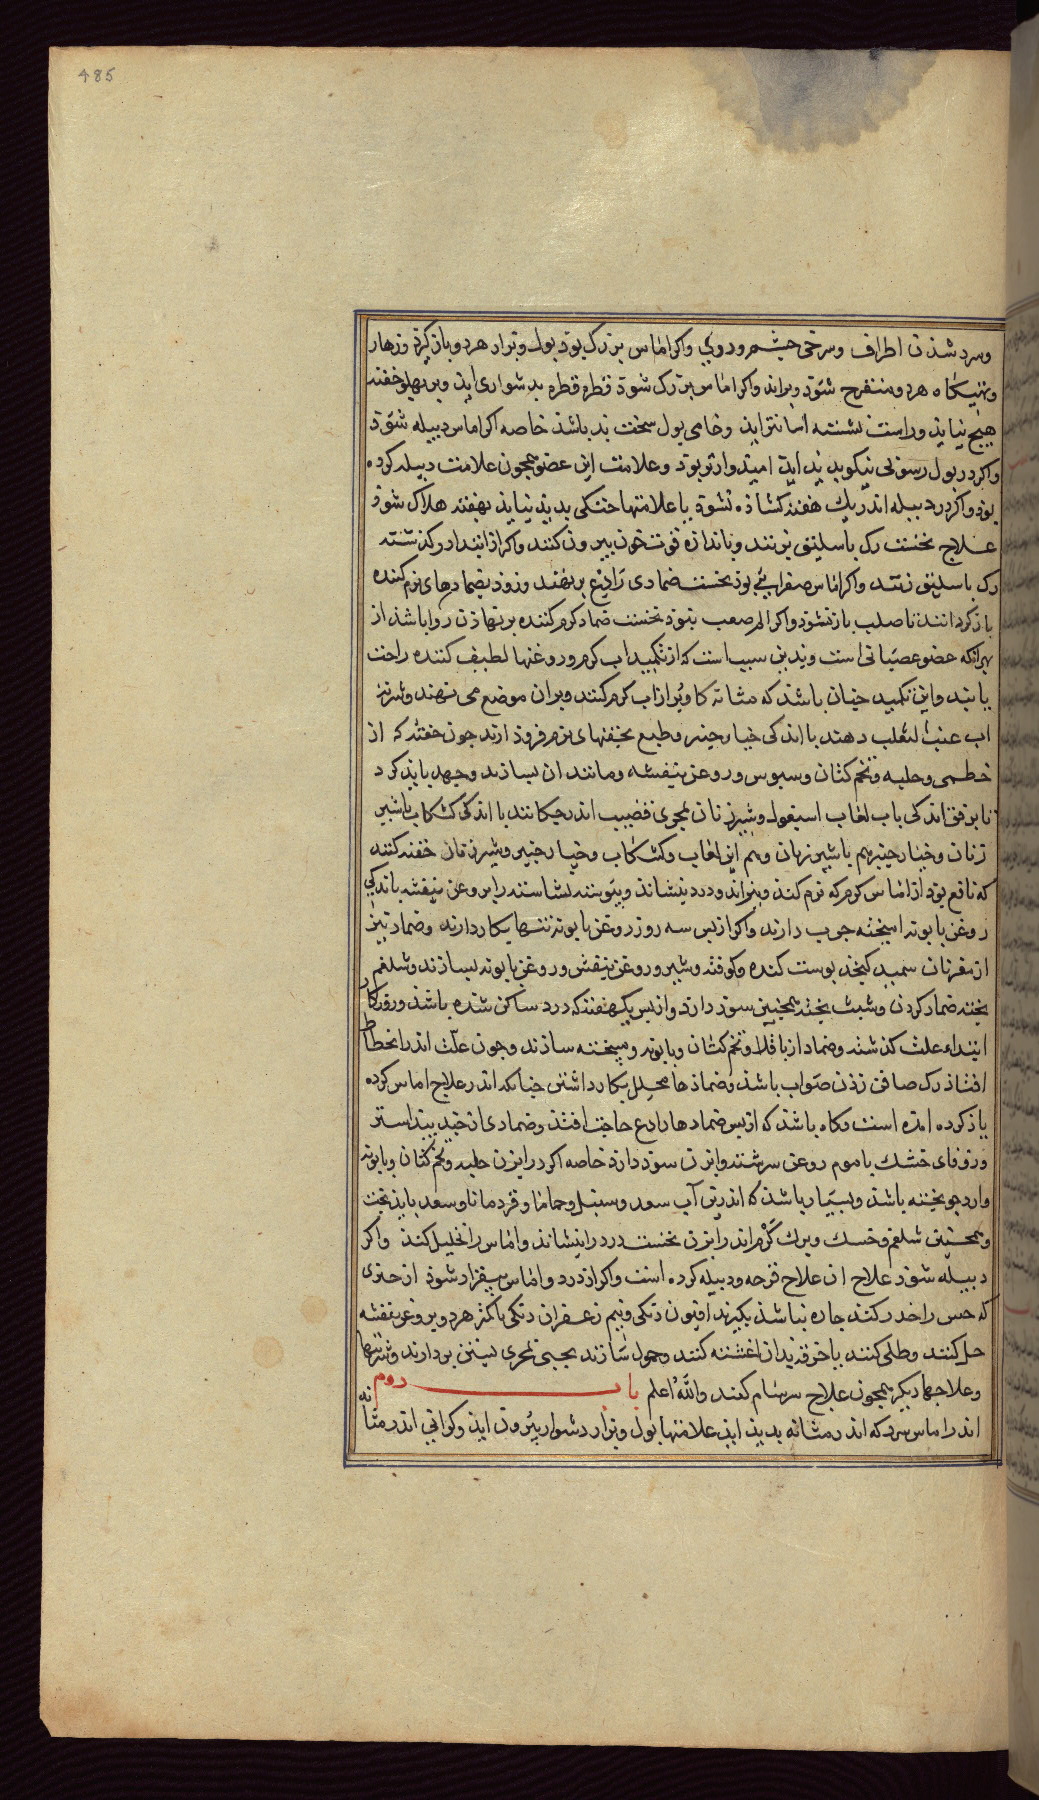 485
وسرد شذن اطراف وسرخی چشم وروی واکر اماس بزرک بوذ بول وبراز هر دو باز کیرذ وزهار
هیچ نیایذ وراست نشسته اسانتر ایذ وخامی بول سخت بذ باشذ خاصه اکر اماس دبیله شوذ
واکر در بول رسوبی نیکو بدید ایذ امیذوارتر بوذ وعلامت این عضو همجون علامت دبیله کرده
بوذ واکر دبیله اندر یک هفته کشاذه نشوذ یا علامتها ختکی بدید نیایذ بهفته هلاک شوذ
علاج نخست رک باسلیق بزنند وباندازه قوت خون بیرون کنند واکر از ابتدا درکذشته
رک باسلیق زنند واکر اماس صفرایی بوذ نخست ضمادی رادع برنهند وزود بضمادهای نرم کننده
باز کردانند تا صلب باز نشوذ واکر الم صعب بوذ نخست ضماد کرم کننده برنهاذن روا باشذ از
بهر انکه عضو عصبانی است وبدین سبب است که از تکمید اب کرم وروغنها لطیف کننده راحت
یابد واین تکمید جنان باشذ که مثانه کاو پر از اب کرم کنند وبران موضع می نهند وشربت
اب عنب الثعلب دهند با اندکی خیارجنبر وطبع بحقنهای نرم فروذ ارند جون حقنه که از
خطمی وحلبه وتخم کتان وسبوس وروغن بنفشه ومانند ان بسازند وجهد بایذ کرد
تا برفق اندکی باب لعاب اسبغول وشیر زنان بمجری قضیب اندر جکانند با اندکی کشکاب یا شیر
زنان وخیارجنبر هم با شیر زنان وهم این لعاب وکشکاب وخیارجنبر وشیر زنان حقنه کنند
که نافع بوذ از اماس کرم که نرم کند وبپزاند ودرد بنشاند وپیوسته نشاسته را بروغن بنفشه باندکی
روغن بابونه امیخته جرب دارند واکر از پس سه روز روغن بابونه تنها بکار دارند وضماد نیز
از مغز نان سمید کنجد پوست کنده وکوفته وشیر وروغن بنفش وروغن بابونه بسازند وشلغم
پخته ضماد کردن وشبث پخته همجنین سوذ دارد واز پس یک هفته که درد ساکن شده باشذ وروزکار
ابتداء علت کذشته وضماد از باقلا وتخم کتان وبابونه ومیبخته سازند وجون علت اندر انحطاط
افتاذ رک صافن زدن صواب باشذ وضماذها محلل بکار داشتن جنانکه اندر علاج اماس کرده
یاذ کرده امده است وکاه باشذ که از پس ضمادها رادع حاجت افتذ وضمادی از جند بیدستر
وزوفای خشک با موم روغن سرشته وابزن سوذ دارذ خاصه اکر در ابزن حلبه وتخم کتان وبابونه
وارد جو پخته باشذ وبسیار باشذ که اندرین آب سعد وسنبل وحماما وقردمانا وسعد بایذ پخت
وهمجنین شلغم وخسک وبرک کرم اندر ابزن نخست درد را بنشاند واماس را تحلیل کند واکر
دبیله شوذ علاج ان علاج قرحه ودبیله کرده است واکر از درد واماس بیقرار شوذ از جیزی
که حس را خدر کند جاره نباشذ بکیرند افیون دنکی ونیم زعفران دنکی با کمتر هر دو بروغن بنفشه
حل کنند وطلی کنند یا خرقه بدان اغشته کنند وحمول سازند بجنبی لمجری نیز بردارند وشربتها
وعلاجها دیکر همجون علاج سرسام کنند والله اعلم باب دوم
اندر اماس سرد که اندر مثانه بدید ایذ علامتها بول وبراز دشوار بیرون ایذ وکرانی اندر مثانه